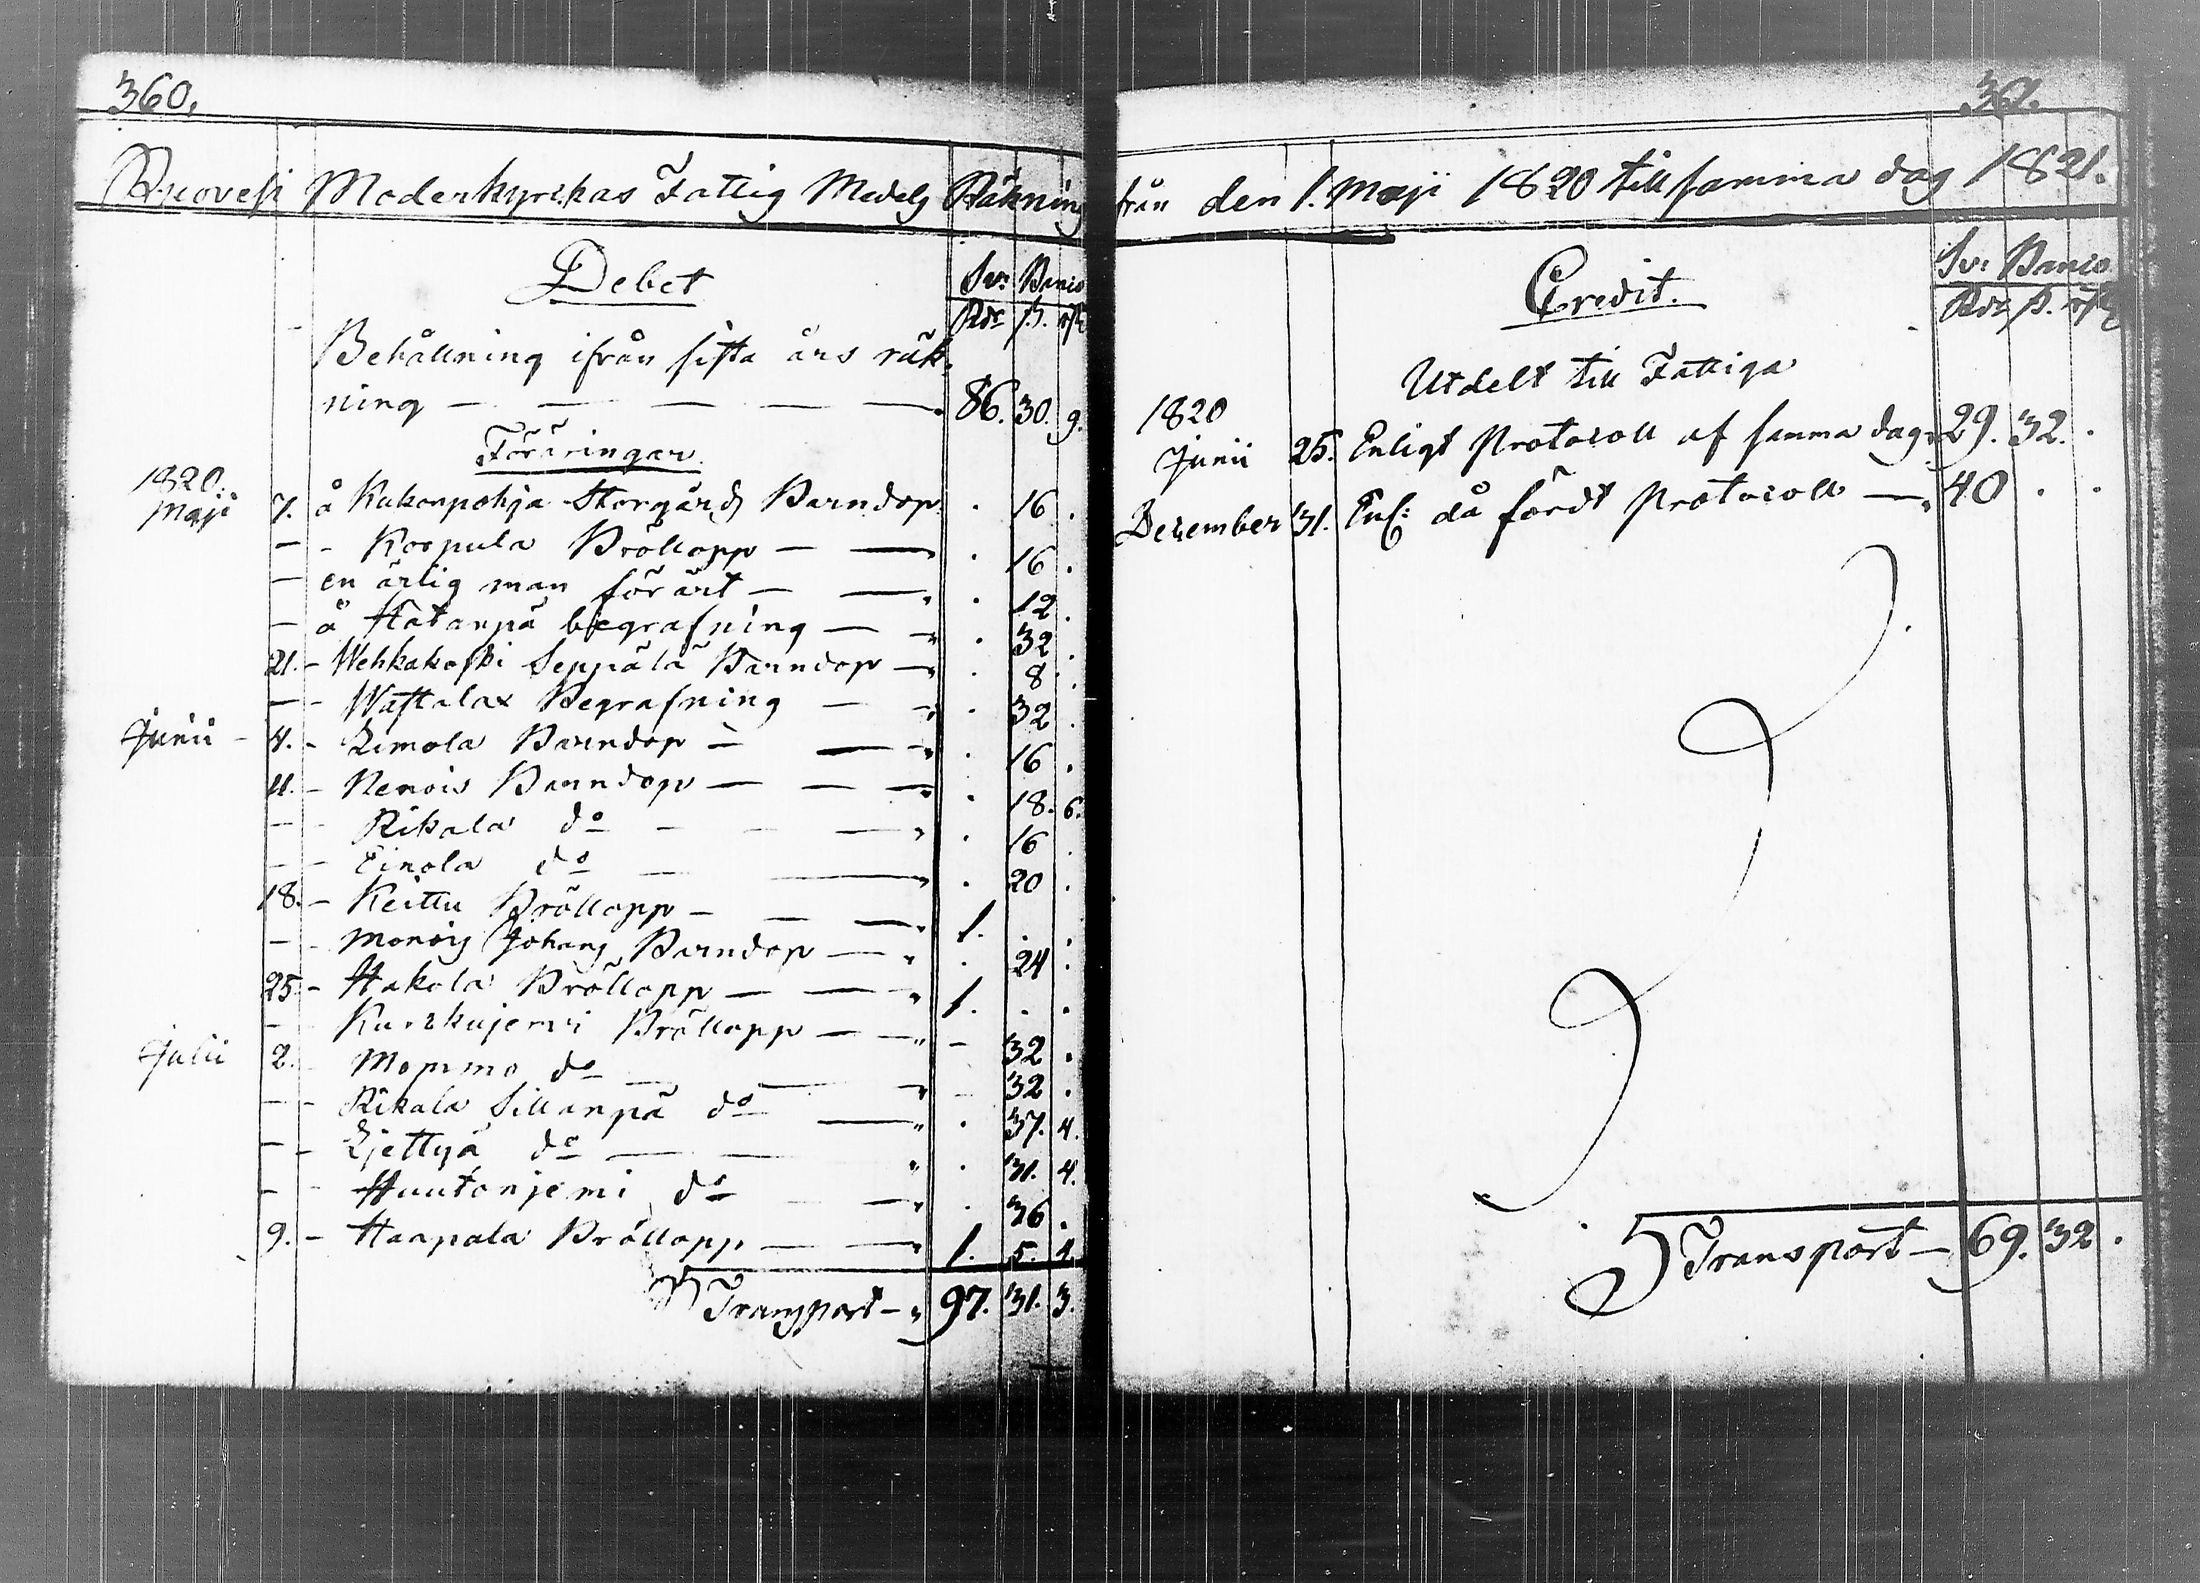 360.
Ruovesi Moderkyrkas Fattig Medels Räkning
Debet
Sv: Banco
Rdr ß. rst
Behållning ifrån sista års räk-
ning — — — — 86. 30. 9.
Föräringar.
1820.
Maji 7. å Kakonpohja Storgårds Barndop. . 16 .
— - Korpula Bröllopp — — . 16 .
— en ärlig man förärt — — . 12 .
— å Hatanpä begrafning — — . 32 .
21. - Wehkakoski Seppälä Barndop — . 8 .
— - Wastalax Begrafning — — . 32 .
Junii - 4. - Limola Barndop — — . 16 .
11. - Nenois Barndop — — — . 18. 6.
— - Rikala do — — — . 16 .
— - Einola do — — . 20 .
18. - Keittu Bröllopp — — — 1. . .
— - Monois Johans Barndop — . 24 .
25. - Hakola Bröllopp — — 1. . .
— - Kurkujerwi Bröllopp — — - 32 .
Julii 2. - Mommo do — — - 32 .
— - Rikala Sillanpä do — . 37. 4.
— - Ljettyä do — — . 31. 4.
— - Huutonjemi do — — . 36 .
9. - Haapala Bröllopp — — 1. 5. 4.
Transport — 97. 31. 3.
361.
från den 1. Maji 1820 till samma dag 1821.
Credit.
Sv: Banco
Rdr ß. rst
Utdelt till Fattiga
1820
Junii 25. Enligt Protocoll af samma dag 29. 32. .
December 31. Enl: då fördt Protocoll — 40 . .
Transport — 69. 32 .